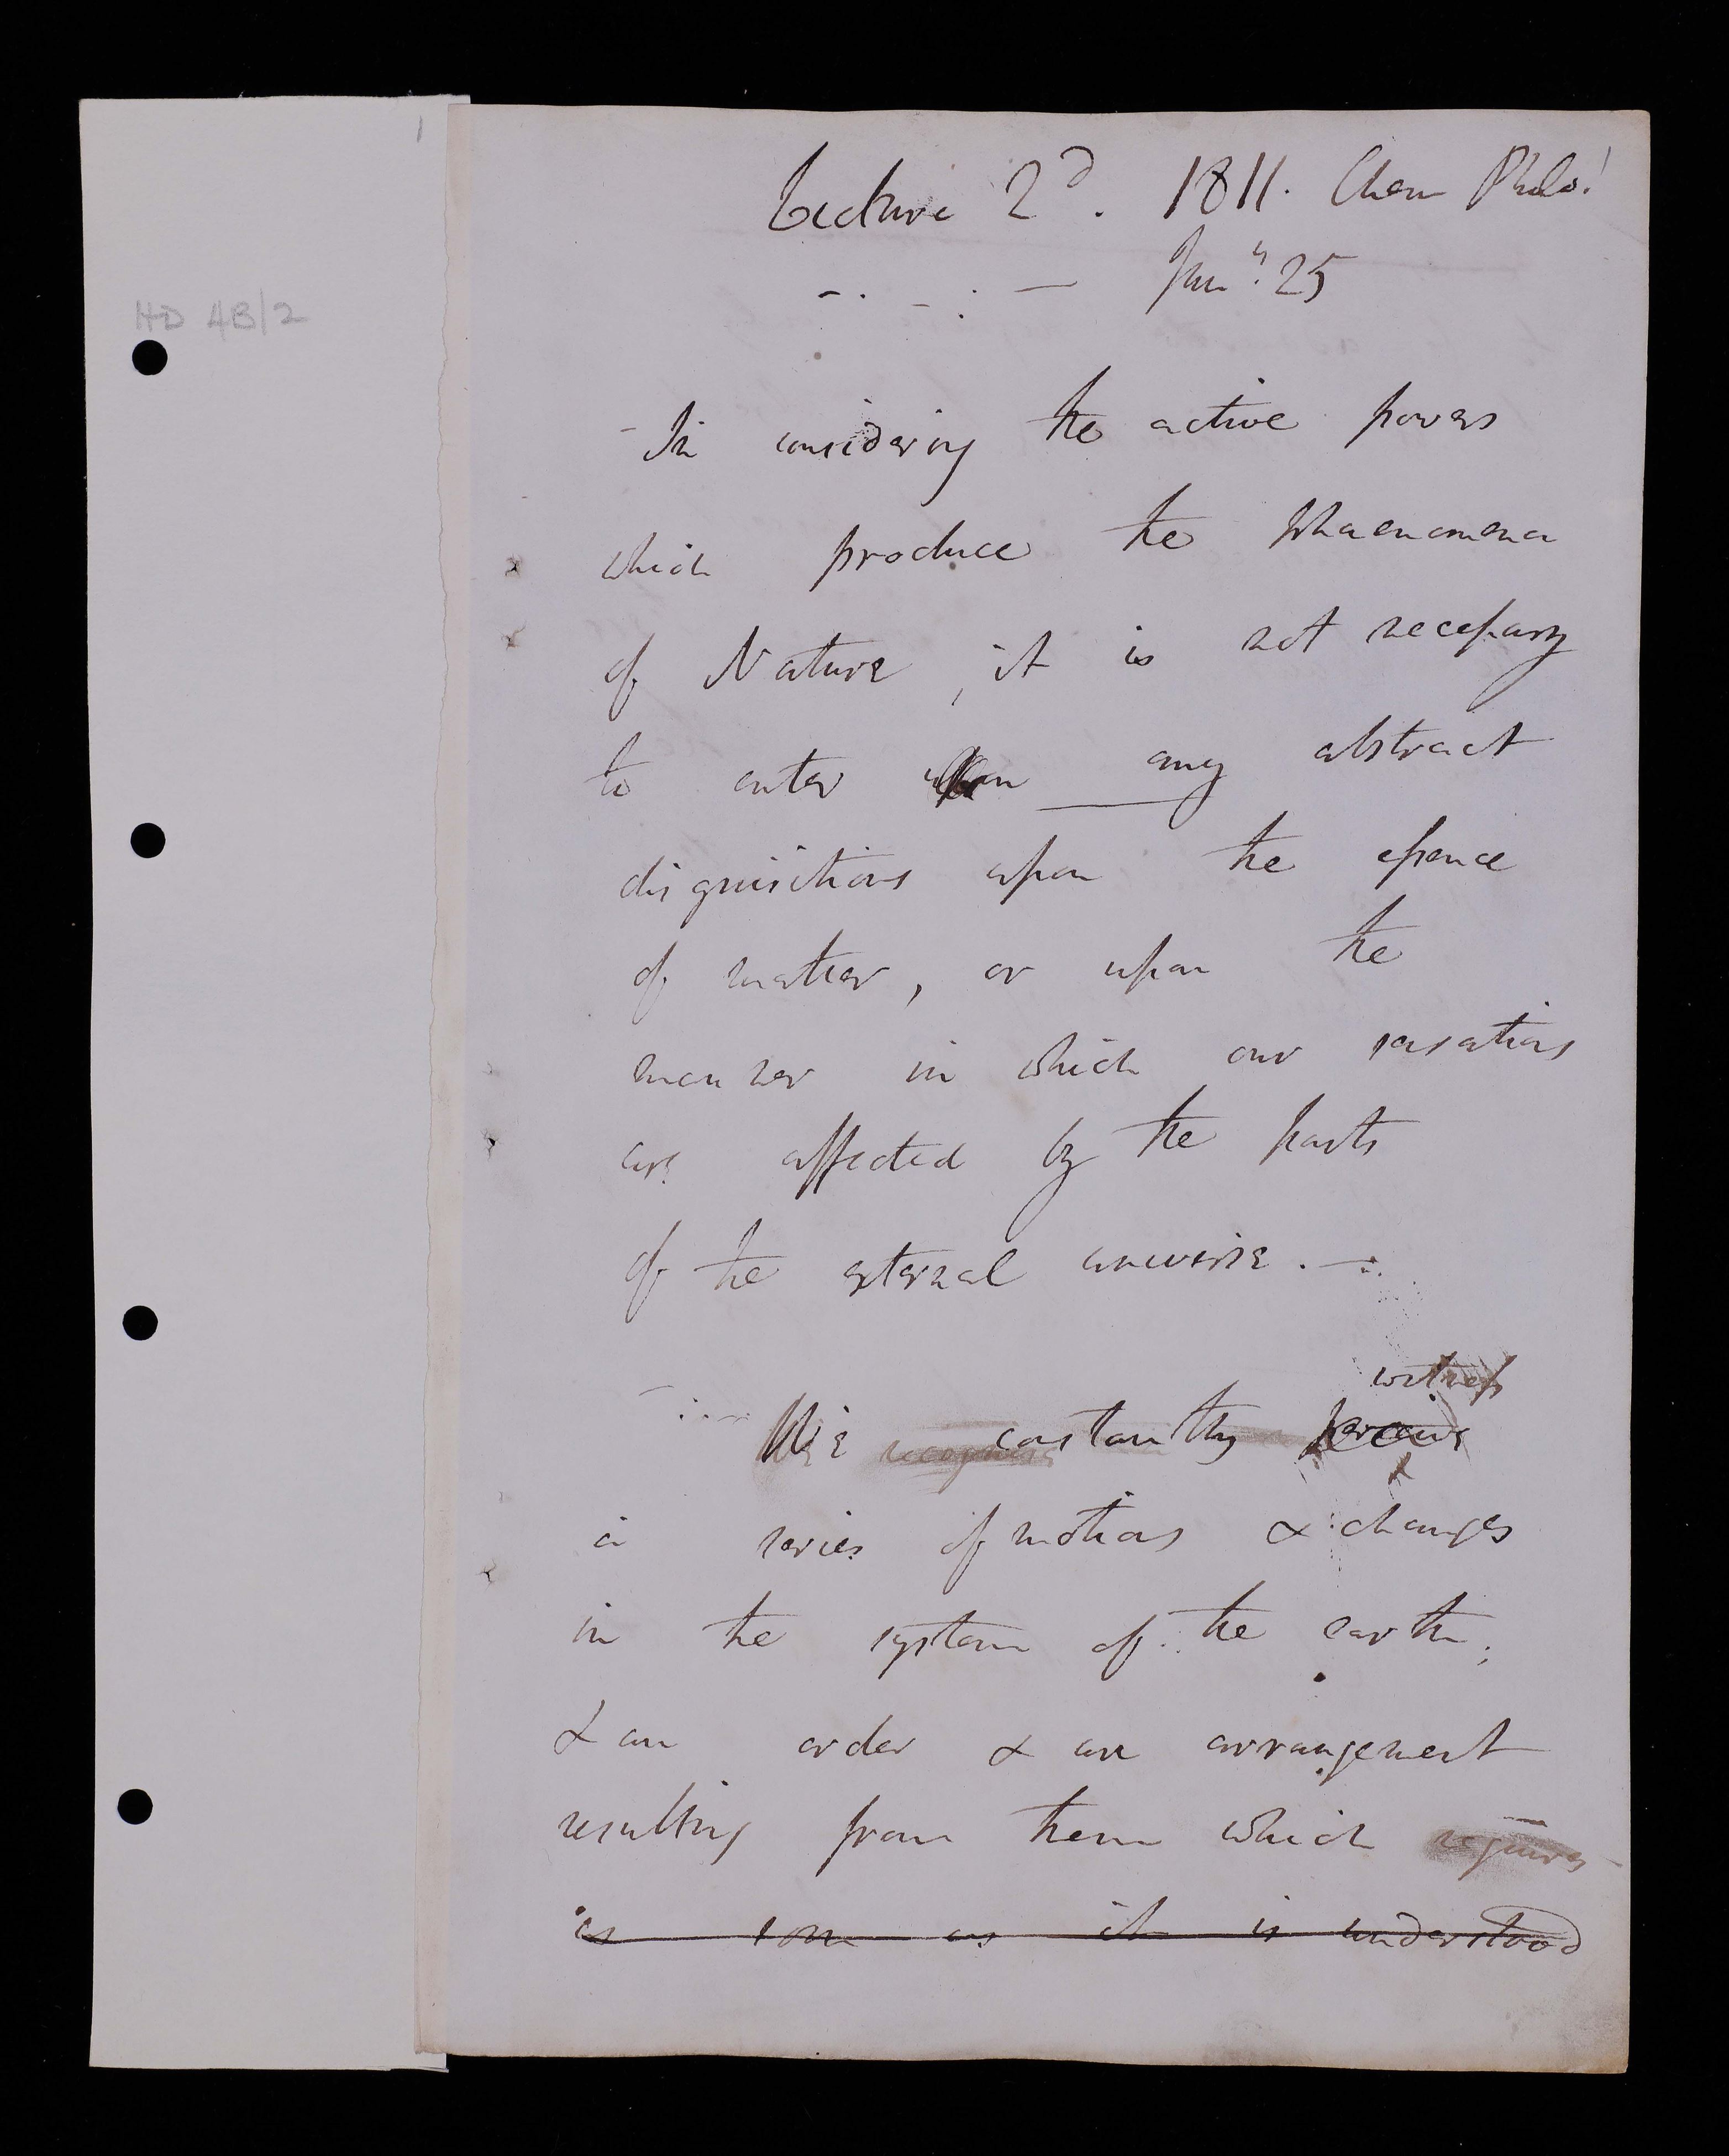 1
HD 4B/2
Lecture 2d. 1811. Chem Philo!
Jany. 25
In considering the active powers
which produce the Phaenomena
of Nature, it is not necessary
to enter upon any abstract
disquisitions upon the essence
of matter, or upon the
manner in which our sensations
are affected by the parts
of the external universe. —
witness
We recognise constantly perceive
a series of motions & changes
in the system of the earth;
& an order & an arrangement
resulting from them which requires
as soon as it is understood